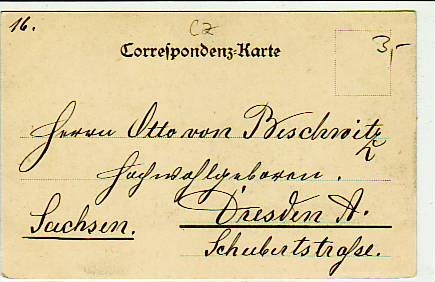 16.
CZ
3,-
Correspondenz-Karte
Herrn Otto von Beschwitz
Hochwohlgeboren.
Dresden A.
Sachsen.
Schubertstraße.